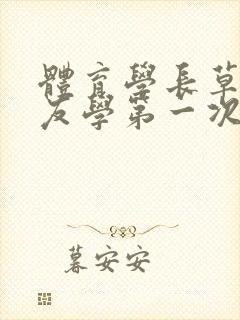 體育學長草
友學第一次
暮安安